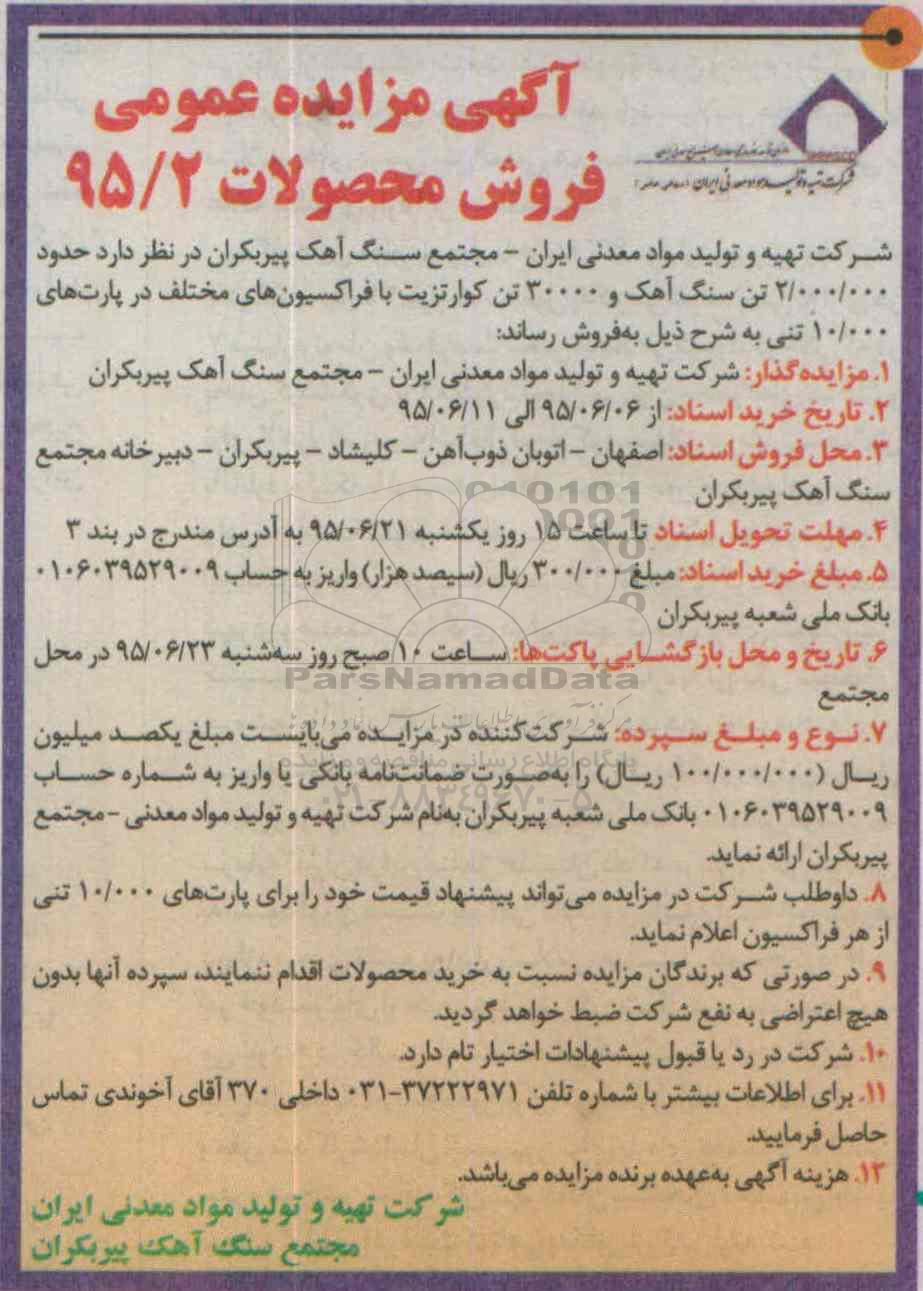 آگهی مزایده عمومی
فروش محصولات ۹۵/۲
شرکت تهیه و تولید مواد معدنی ایران (سهامی خاص)
شرکت تهیه و تولید مواد معدنی ایران - مجتمع سنگ آهک پیربکران در نظر دارد حدود
۲/۰۰۰/۰۰۰ تن سنگ آهک و ۳۰۰۰۰ تن کوارتزیت با فراکسیون‌های مختلف در پارت‌های
۱۰/۰۰۰ تنی به شرح ذیل به‌فروش رساند:
۱. مزایده‌گذار: شرکت تهیه و تولید مواد معدنی ایران - مجتمع سنگ آهک پیربکران
۲. تاریخ خرید اسناد: از ۹۵/۰۶/۰۶ الی ۹۵/۰۶/۱۱
۳. محل فروش اسناد: اصفهان - اتوبان ذوب‌آهن - کلیشاد - پیربکران - دبیرخانه مجتمع
سنگ آهک پیربکران
۴. مهلت تحویل اسناد تا ساعت ۱۵ روز یکشنبه ۹۵/۰۶/۲۱ به آدرس مندرج در بند ۳
۵. مبلغ خرید اسناد: مبلغ ۳۰۰/۰۰۰ ریال (سیصد هزار) واریز به حساب ۰۱۰۶۰۳۹۵۲۹۰۰۹
بانک ملی شعبه پیربکران
۶. تاریخ و محل بازگشایی پاکت‌ها: ساعت ۱۰ صبح روز سه‌شنبه ۹۵/۰۶/۲۳ در محل
مجتمع
۷. نوع و مبلغ سپرده: شرکت‌کننده در مزایده می‌بایست مبلغ یکصد میلیون
ریال (۱۰۰/۰۰۰/۰۰۰ ریال) را به‌صورت ضمانت‌نامه بانکی یا واریز به شماره حساب
۰۱۰۶۰۳۹۵۲۹۰۰۹ بانک ملی شعبه پیربکران به‌نام شرکت تهیه و تولید مواد معدنی - مجتمع
پیربکران ارائه نماید.
۸. داوطلب شرکت در مزایده می‌تواند پیشنهاد قیمت خود را برای پارت‌های ۱۰/۰۰۰ تنی
از هر فراکسیون اعلام نماید.
۹. در صورتی که برندگان مزایده نسبت به خرید محصولات اقدام ننمایند، سپرده آنها بدون
هیچ اعتراضی به نفع شرکت ضبط خواهد گردید.
۱۰. شرکت در رد یا قبول پیشنهادات اختیار تام دارد.
۱۱. برای اطلاعات بیشتر با شماره تلفن ۳۷۲۲۲۹۷۱-۰۳۱ داخلی ۳۷۰ آقای آخوندی تماس
حاصل فرمایید.
۱۲. هزینه آگهی به‌عهده برنده مزایده می‌باشد.
شرکت تهیه و تولید مواد معدنی ایران
مجتمع سنگ آهک پیربکران
ParsNamadData
پایگاه اطلاع رسانی مناقصه و مزایده
۰۲۱-۸۸۳۴۹۶۷۰-۵